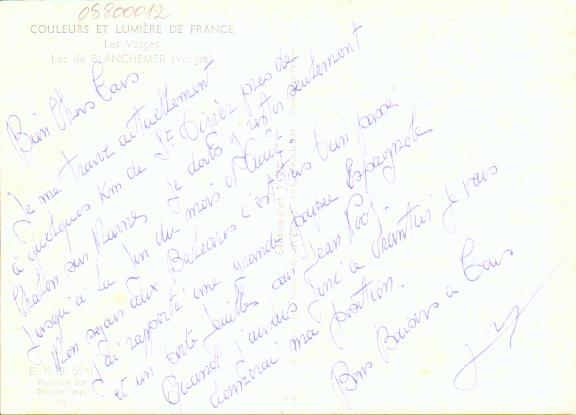 08800012
COULEURS ET LUMIÈRE DE FRANCE
Les Vosges
Lac de BLANCHEMER (Vosges)
Bien chers tous
Je me trouve actuellement
à quelques Km de St Dizier près de
Chalon sur Marne. Je dois y rester seulement
jusqu'à la fin du mois d'Août
Mon séjour aux Baléares c'est très bien passé
J'ai rapporté une grande poupée Espagnole
et un porte feuilles au Jean Paul.
Quand j'aurais à je vous
donnerai ma position.
Bons Baisers a tous
E. K. B. 594
Imp.